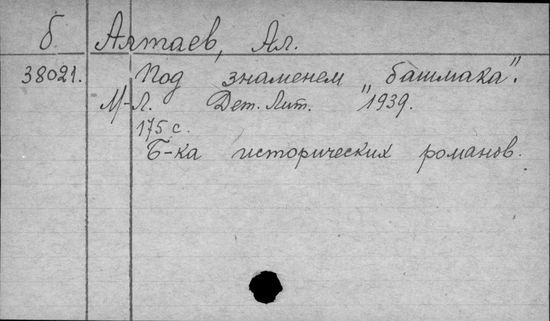 б. Алтаев, Ал.
38021. Под знаменем „башмака".
М-Л. Дет. Лит. 1939.
175 с.
Б-ка исторических романов.